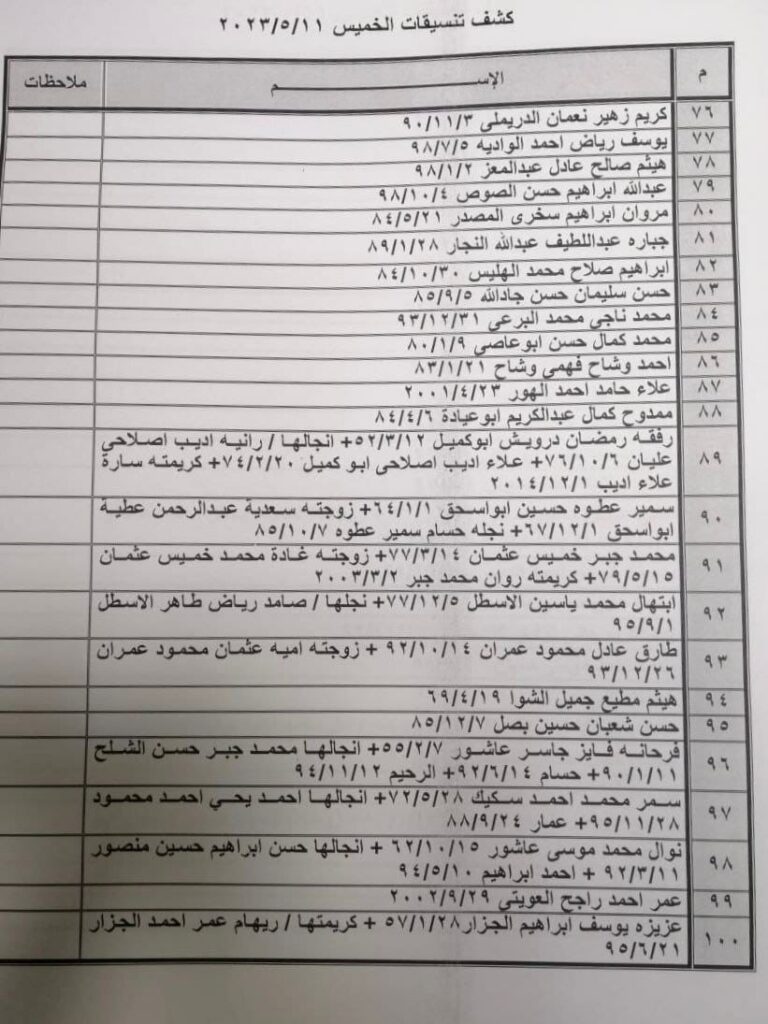 كشف تنسيقات الخميس ٢٠٢٣/٥/١١
م الإســـم ملاحظات
٧٦ كريم زهير نعمان الدريملي ٩٠/١١/٣
٧٧ يوسف رياض احمد الواديه ٩٨/٧/٥
٧٨ هيثم صالح عادل عبدالمعز ٩٨/١/٢
٧٩ عبدالله ابراهيم حسن الصوص ٩٨/١٠/٤
٨٠ مروان ابراهيم سخرى المصدر ٨٤/٥/٢١
٨١ جباره عبداللطيف عبدالله النجار ٨٩/١/٢٨
٨٢ ابراهيم صلاح محمد الهليس ٨٤/١٠/٣٠
٨٣ حسن سليمان حسن جادالله ٨٥/٩/٥
٨٤ محمد ناجي محمد البرعي ٩٣/١٢/٣١
٨٥ محمد كمال حسن ابوعاصي ٨٠/١/٩
٨٦ احمد وشاح فهمي وشاح ٨٣/١/٢١
٨٧ علاء حامد احمد الهور ٢٠٠١/٤/٢٣
٨٨ ممدوح كمال عبدالكريم ابوعيادة ٨٤/٤/٦
٨٩ رفقه رمضان درويش ابوكميل ٥٢/٣/١٢+ انجالها / رانيه اديب اصلاحي
عليان ٧٦/١٠/٦+ علاء اديب اصلاحى ابو كميل ٧٤/٢/٢٠+ كريمته سارة
علاء اديب ٢٠١٤/١٢/١
٩٠ سمير عطوه حسين ابواسحق ٦٤/١/١+ زوجته سعدية عبدالرحمن عطية
ابواسحق ٦٧/١٢/١+ نجله حسام سمير عطوه ٨٥/١٠/٧
٩١ محمد جبر خميس عثمان ٧٧/٣/١٤+ زوجته غادة محمد خميس عثمان
٧٩/٥/١٥+ كريمته روان محمد جبر ٢٠٠٣/٣/٢
٩٢ ابتهال محمد ياسين الاسطل ٧٧/١٢/٥+ نجلها / صامد رياض طاهر الاسطل
٩٥/٩/١
٩٣ طارق عادل محمود عمران ٩٢/١٠/١٤ + زوجته اميه عثمان محمود عمران
٩٣/١٢/٢٦
٩٤ هيثم مطيع جميل الشوا ٦٩/٤/١٩
٩٥ حسن شعبان حسين بصل ٨٥/١٢/٧
٩٦ فرحانه فايز جاسر عاشور ٥٥/٢/٧+ انجالها محمد جبر حسن الشلح
٩٠/١/١١+ حسام ٩٢/٦/١٤+ الرحيم ٩٤/١١/١٢
٩٧ سمر محمد احمد سكيك ٧٢/٥/٢٨+ انجالها احمد يحي احمد محمود
٩٥/١١/٢٨+ عمار ٨٨/٩/٢٤
٩٨ نوال محمد موسى عاشور ٦٢/١٠/١٥ + انجالها حسن ابراهيم حسين منصور
٩٢/٣/١١ + احمد ابراهيم ٩٤/٥/١٠
٩٩ عمر احمد راجح العويتي ٢٠٠٢/٩/٢٩
١٠٠ عزيزه يوسف ابراهيم الجزار٥٧/١/٢٨ + كريمتها / ريهام عمر احمد الجزار
٩٥/٦/٢١